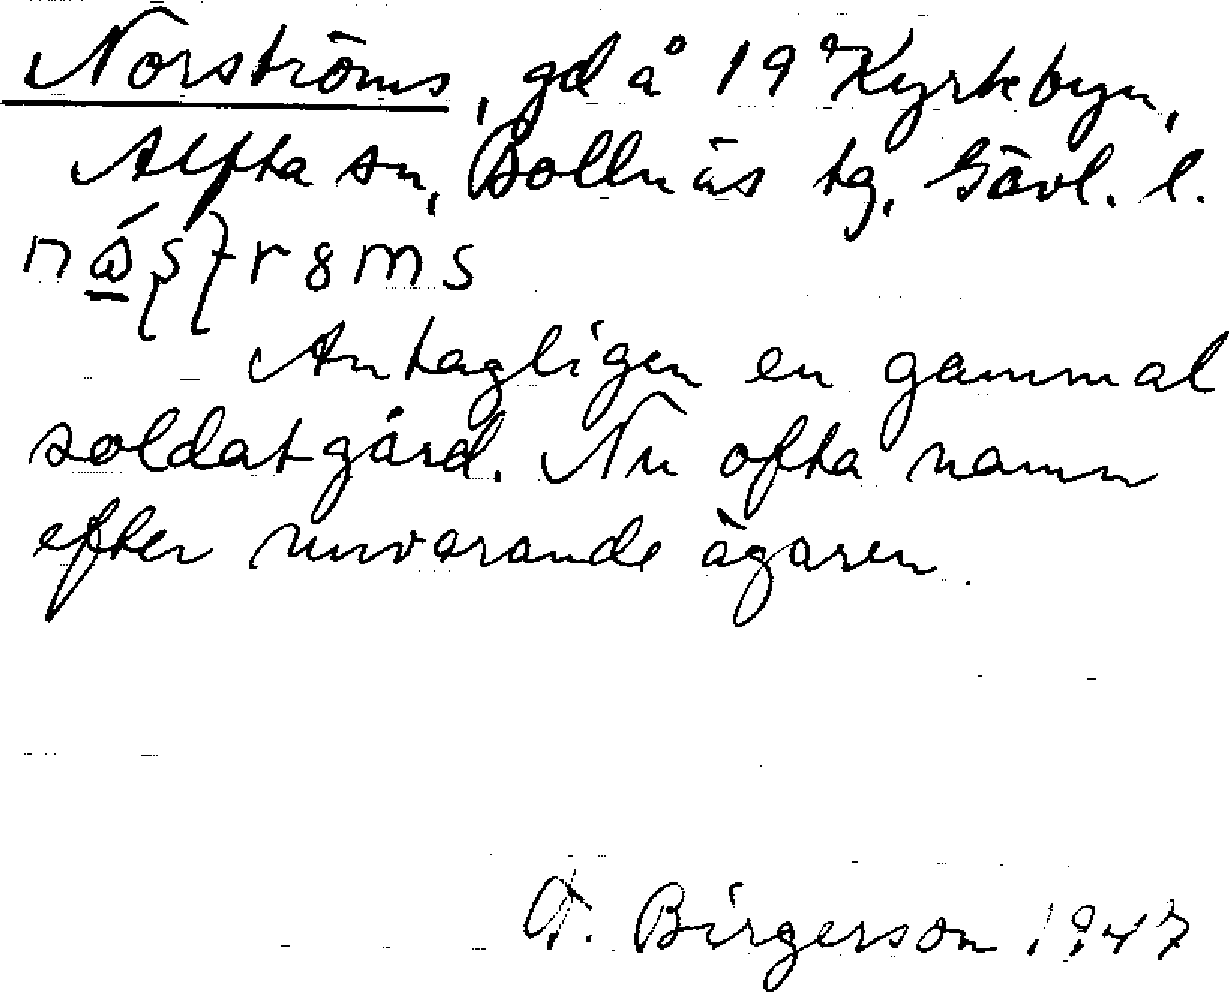 Norströms, gd å 19 Kyrkbyn,
Alfta sn, Bollnäs tg, Gävl. l.
Antagligen en gammal
soldatgård. Nu ofta namn
efter nuvarande ägaren.
Birgerson 1947